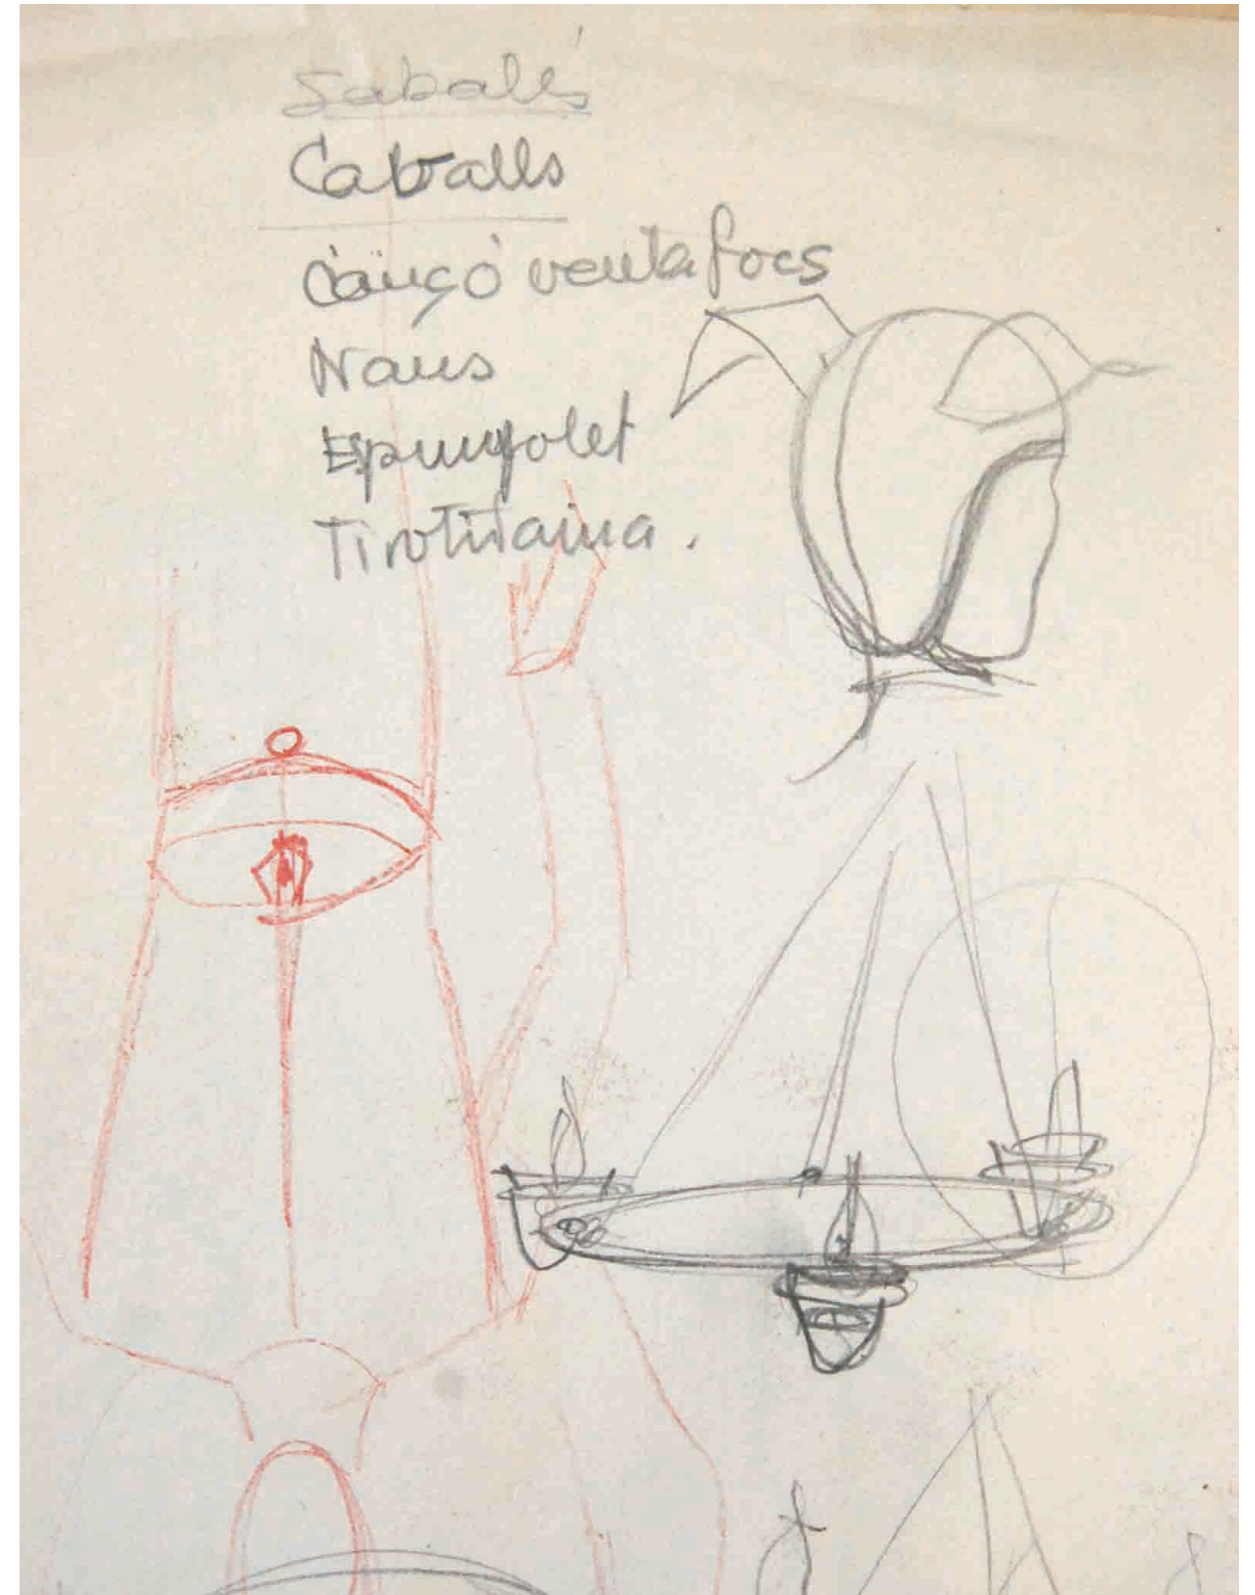 Caballs
Cançó ventafocs
Naus
Espinyolet
Tirotitaina.